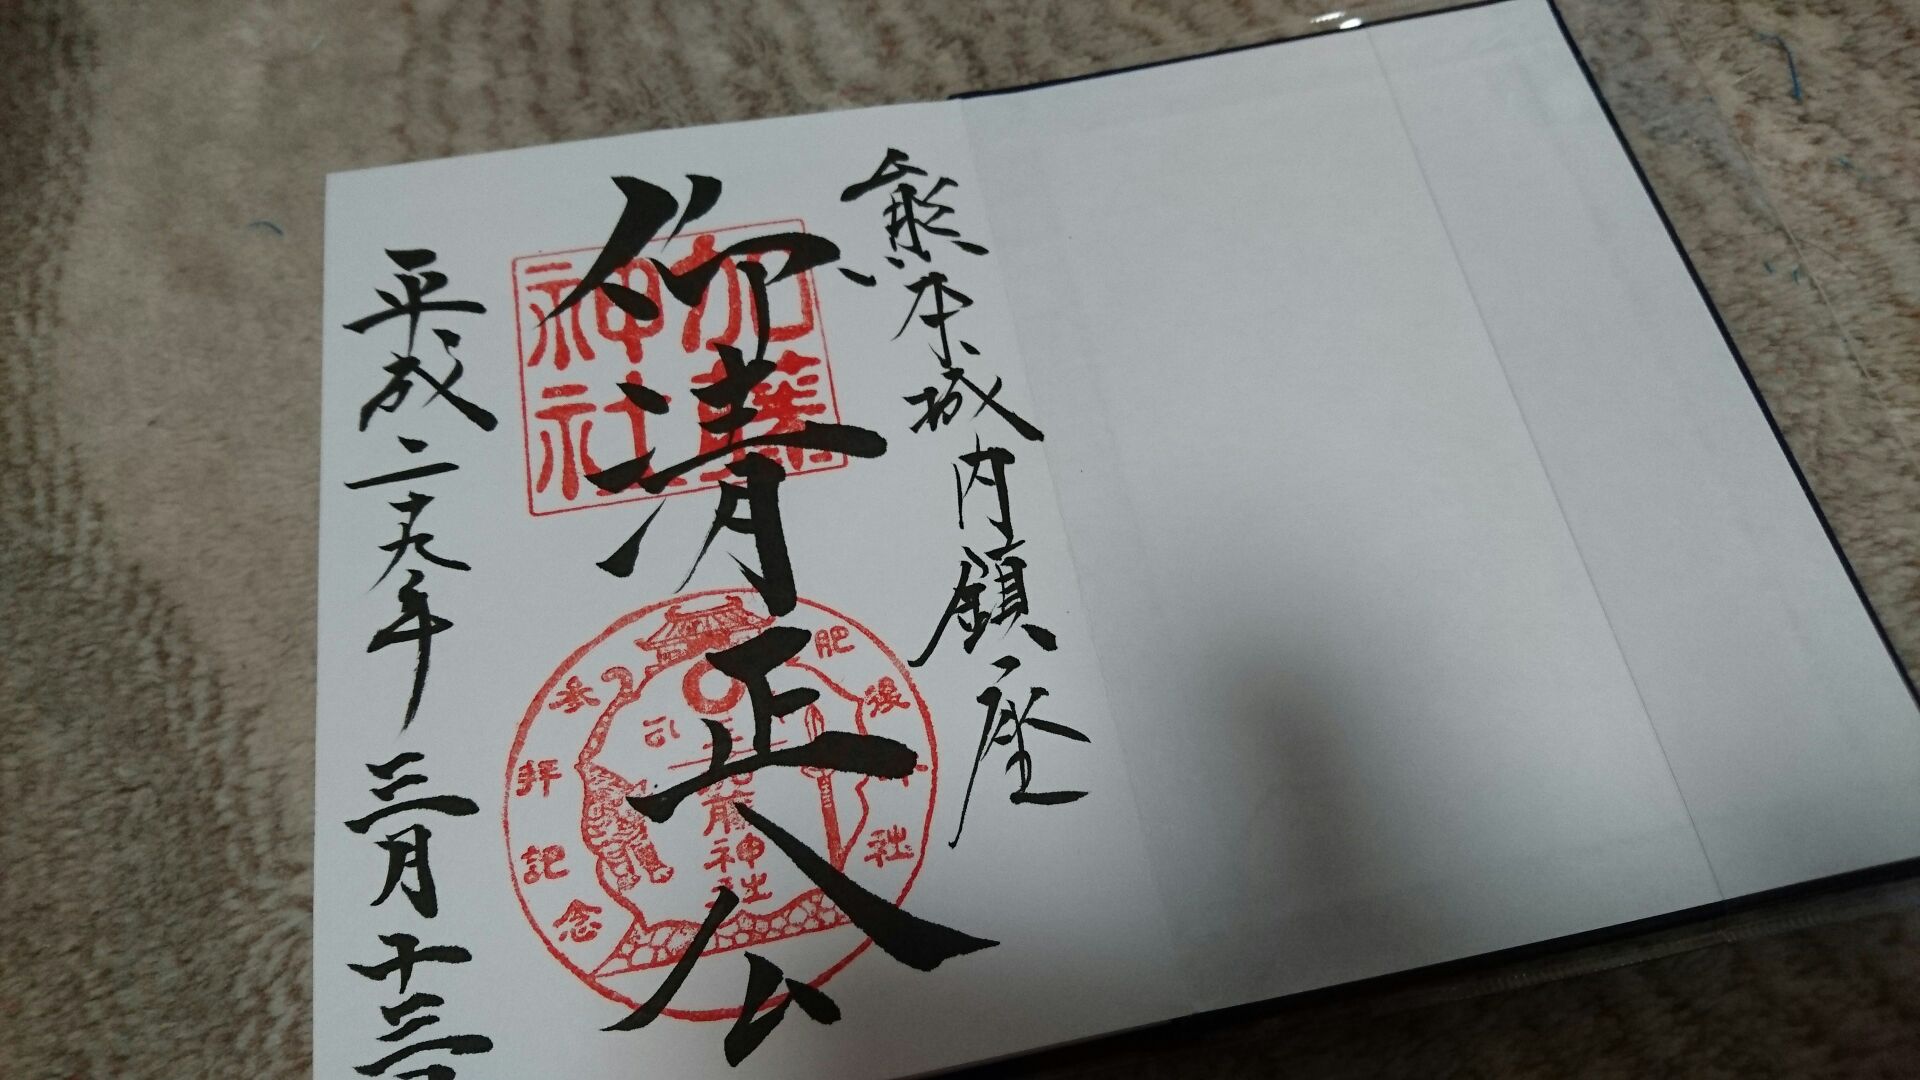 熊本城内鎮座
仰清正公
平成二十九年三月十三
加藤
神社
肥後
社
参拝記念
藤神社